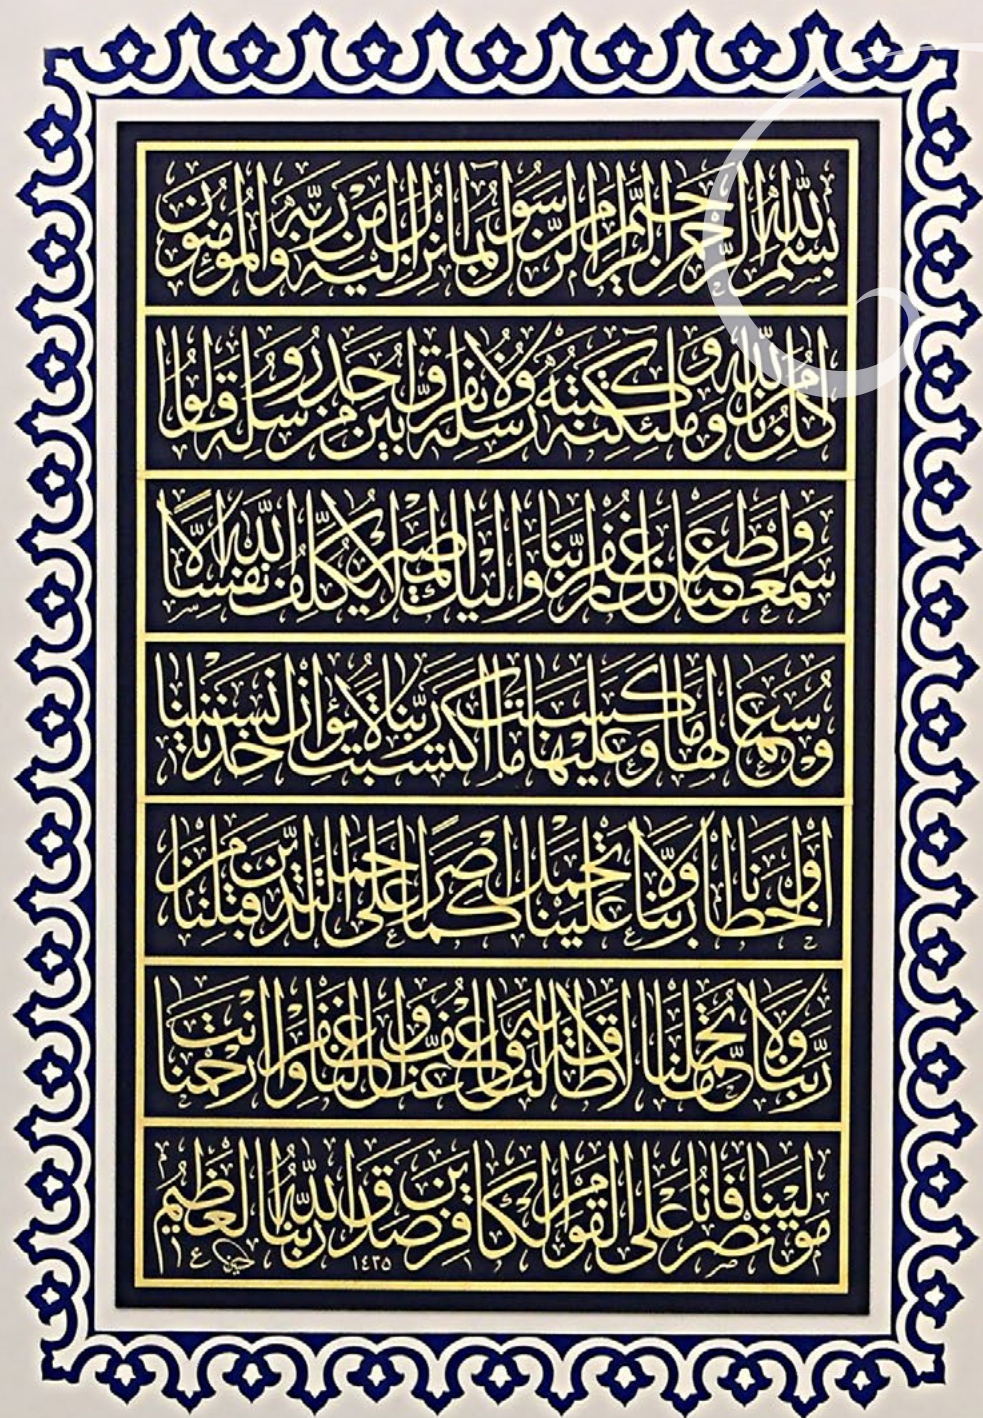 بسم الله الرحمن الرحيم آمن الرسول بما أنزل إليه من ربه والمؤمنون
كل آمن بالله وملئكته وكتبه ورسله لا نفرق بين أحد من رسله وقالوا
سمعنا وأطعنا غفرانك ربنا وإليك المصير لا يكلف الله نفسا إلا
وسعها لها ما كسبت وعليها ما اكتسبت ربنا لا تؤاخذنا إن نسينا
أو أخطأنا ربنا ولا تحمل علينا إصرا كما حملته على الذين من قبلنا
ربنا ولا تحملنا ما لا طاقة لنا به واعف عنا واغفر لنا وارحمنا أنت
مولينا فانصرنا على القوم الكافرين صدق الله ربنا العظيم
١٤٣٥